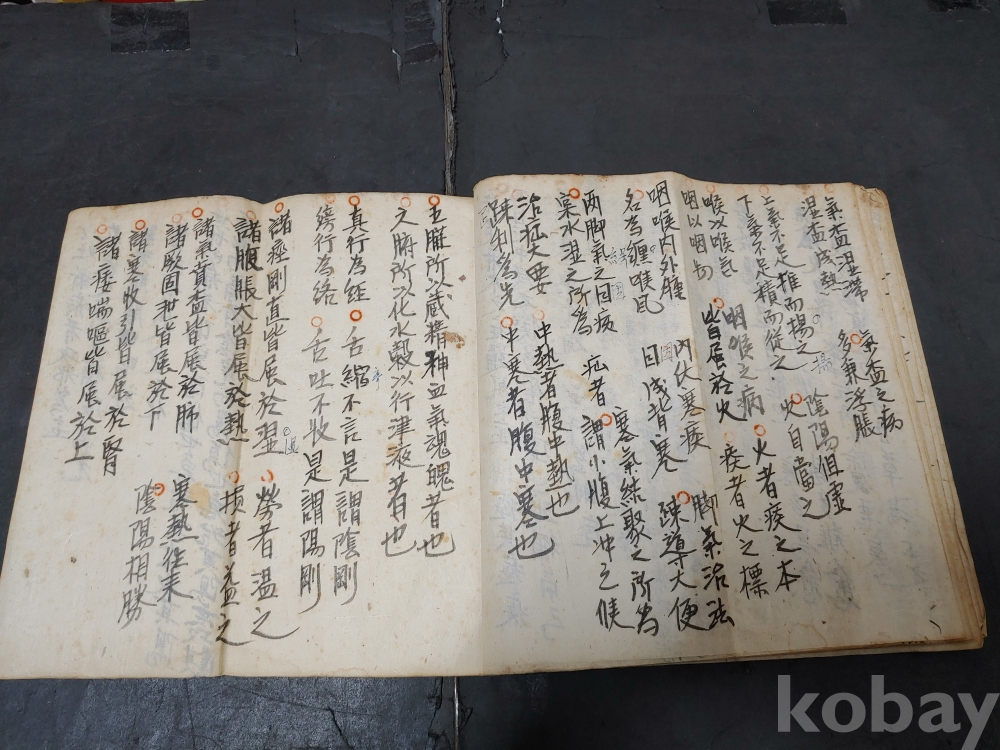 氣盃之病
氣盃湿滯
多兼浮脹
湿盃成熱
陰陽俱虛
上氣不足推而揚之
火自當之
下氣不足積而從之
火者痰之本
喉以喉氣
咽喉之病
痰者火之標
咽以咽物
皆属於火
咽喉内外腫
内伏寒痰
脚氣治法
名為纏喉風
因
疎導大便
两脚氣之因病
寒氣結聚之所為
稟水湿之所為
疝者謂小腹上冲之候
治疝大要
中熱者腹中熱也
疎利為先
中寒者腹中寒也
五臟所以蔵精神血氣魂魄者也
之腑所以化水糓以行津液者也
真行為経
舌縮不言是謂陰剛
舌吐不收是謂陽剛
諸痙剛直皆属於湿
勞者温之
諸腹脹大皆属於熱
損者益之
諸氣賁盃皆属於肺
寒熱往来
諸厥固泄皆属於下
陰陽相勝
諸寒收引皆属於腎
諸痿喘嘔皆属於上
kobay